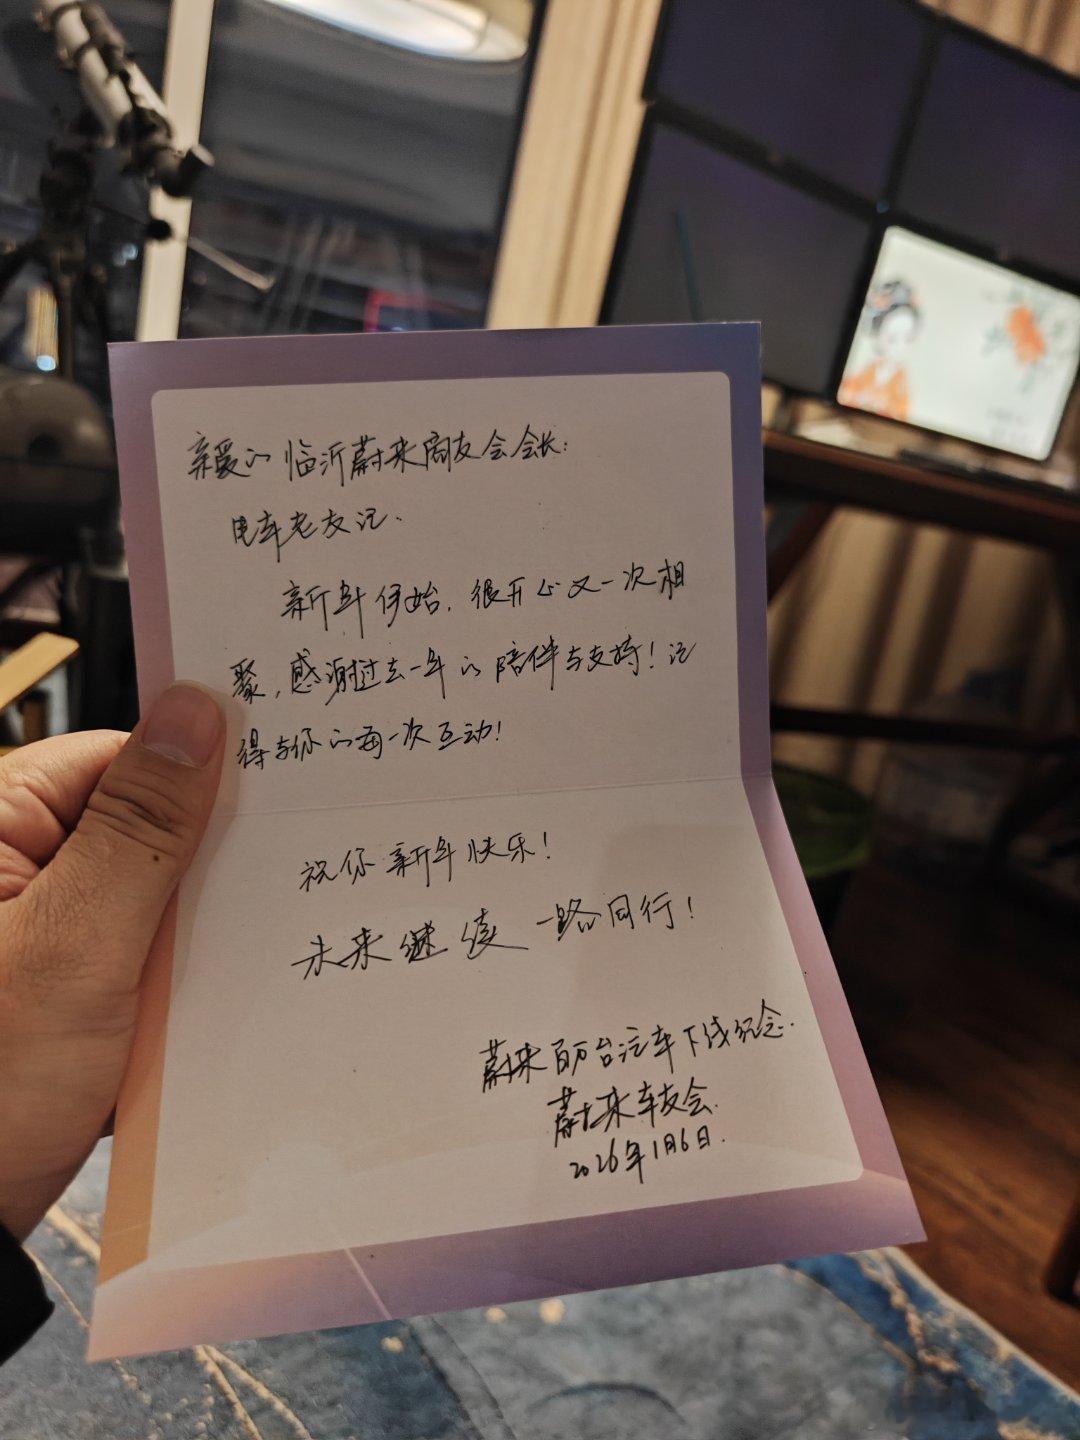 亲爱的临沂蔚来商友会会长:
电车老友记.
新年伊始,很开心又一次相
聚,感谢过去一年的陪伴与支持!记
得与你的每一次互动!
祝你新年快乐!
未来继续一路同行!
蔚来百万台汽车下线纪念.
蔚来车友会.
2026年1月6日.